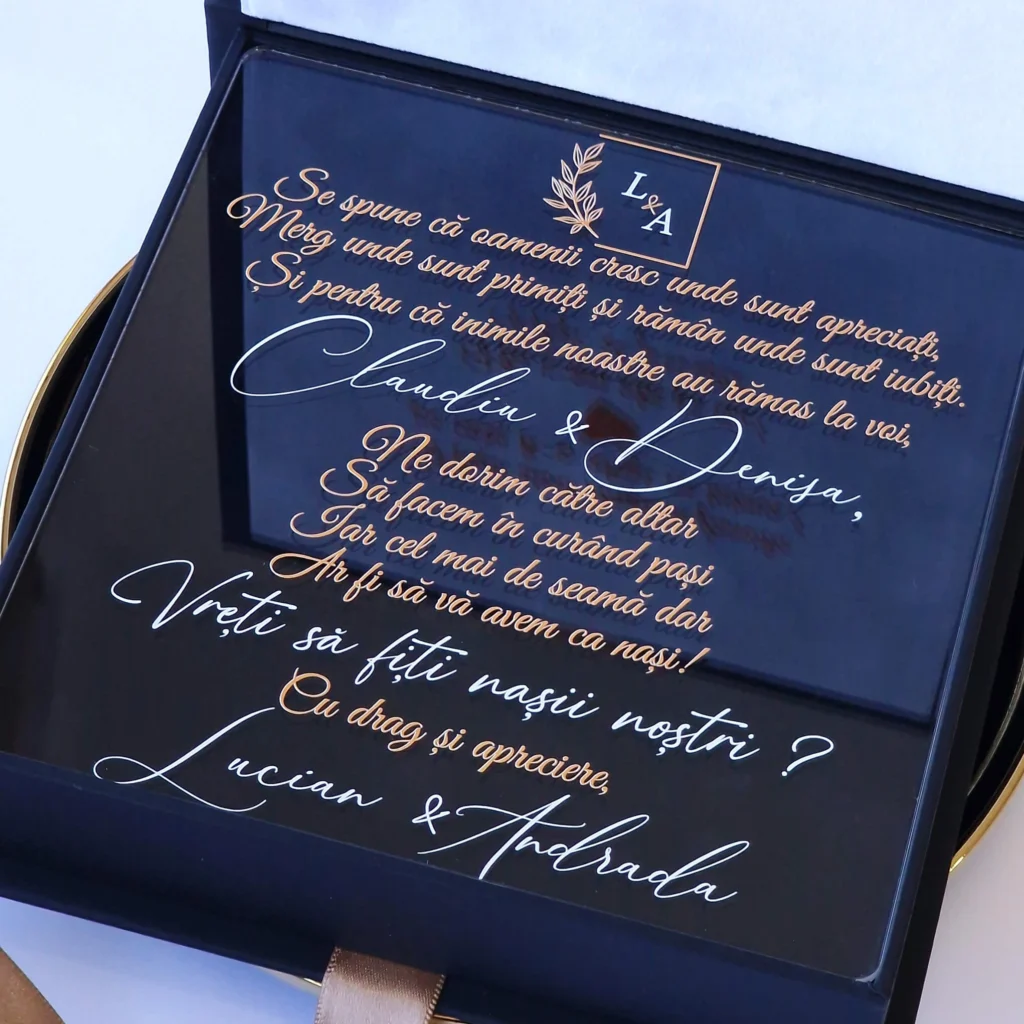 L
&
A
Se spune că oamenii cresc unde sunt apreciați,
Merg unde sunt primiți și rămân unde sunt iubiți.
Și pentru că inimile noastre au rămas la voi,
Claudiu & Denisa,
Ne dorim către altar
Să facem în curând pași
Iar cel mai de seamă dar
Ar fi să vă avem ca nași!
Vreți să fiți nașii noștri ?
Cu drag și apreciere,
Lucian & Andrada